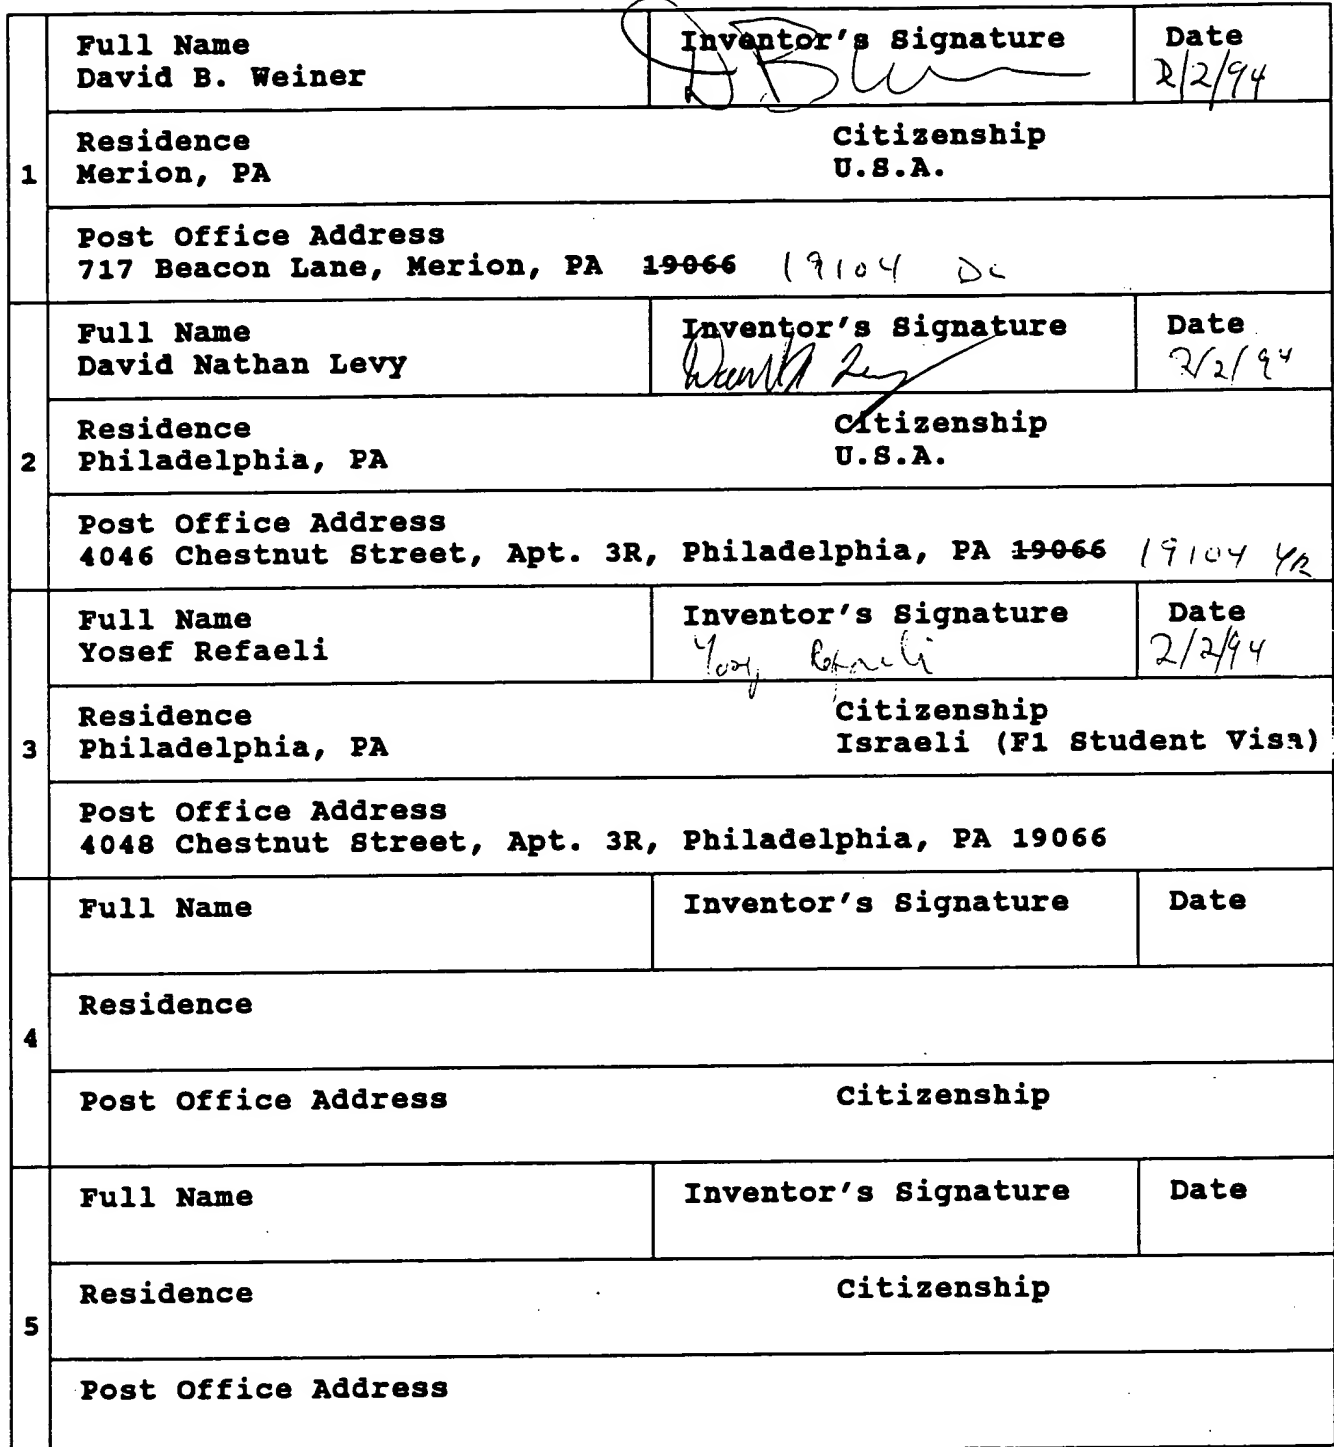 Full Name
David B. Weiner
Inventor's Signature
Date
2/2/94
1
Residence
Merion, PA
Citizenship
U.S.A.
Post Office Address
717 Beacon Lane, Merion, PA 19066 19104
Full Name
David Nathan Levy
Inventor's Signature
Date
2/2/94
2
Residence
Philadelphia, PA
Citizenship
U.S.A.
Post Office Address
4046 Chestnut Street, Apt. 3R, Philadelphia, PA 19066 19104 YR
Full Name
Yosef Refaeli
Inventor's Signature
Yosef Refaeli
Date
2/2/94
3
Residence
Philadelphia, PA
Citizenship
Israeli (F1 Student Visa)
Post Office Address
4048 Chestnut Street, Apt. 3R, Philadelphia, PA 19066
Full Name
Inventor's Signature
Date
4
Residence
Post Office Address
Citizenship
Full Name
Inventor's Signature
Date
5
Residence
Citizenship
Post Office Address